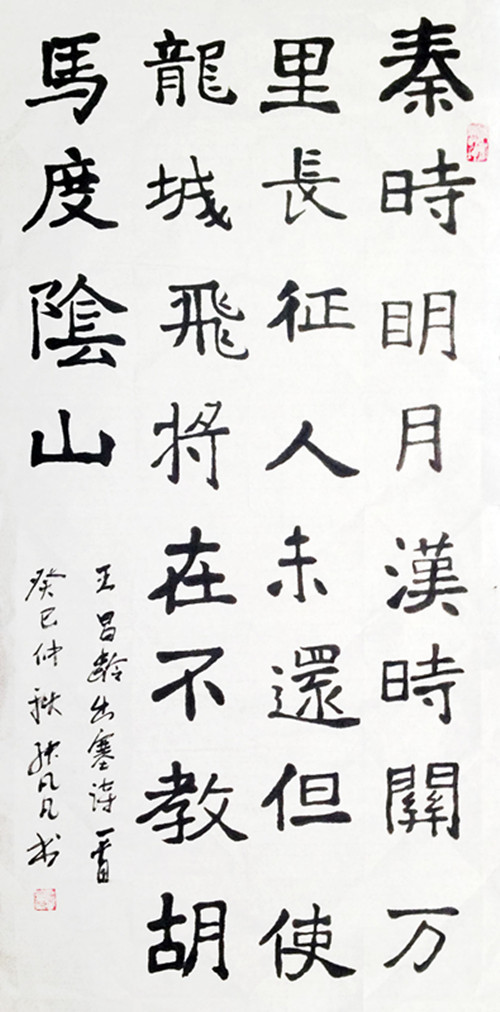 秦時眀月漢時關万
里長征人未還但使
龍城飛將在不教胡
馬度陰山
王昌齡出塞诗一首
癸巳仲秋張凡凡书